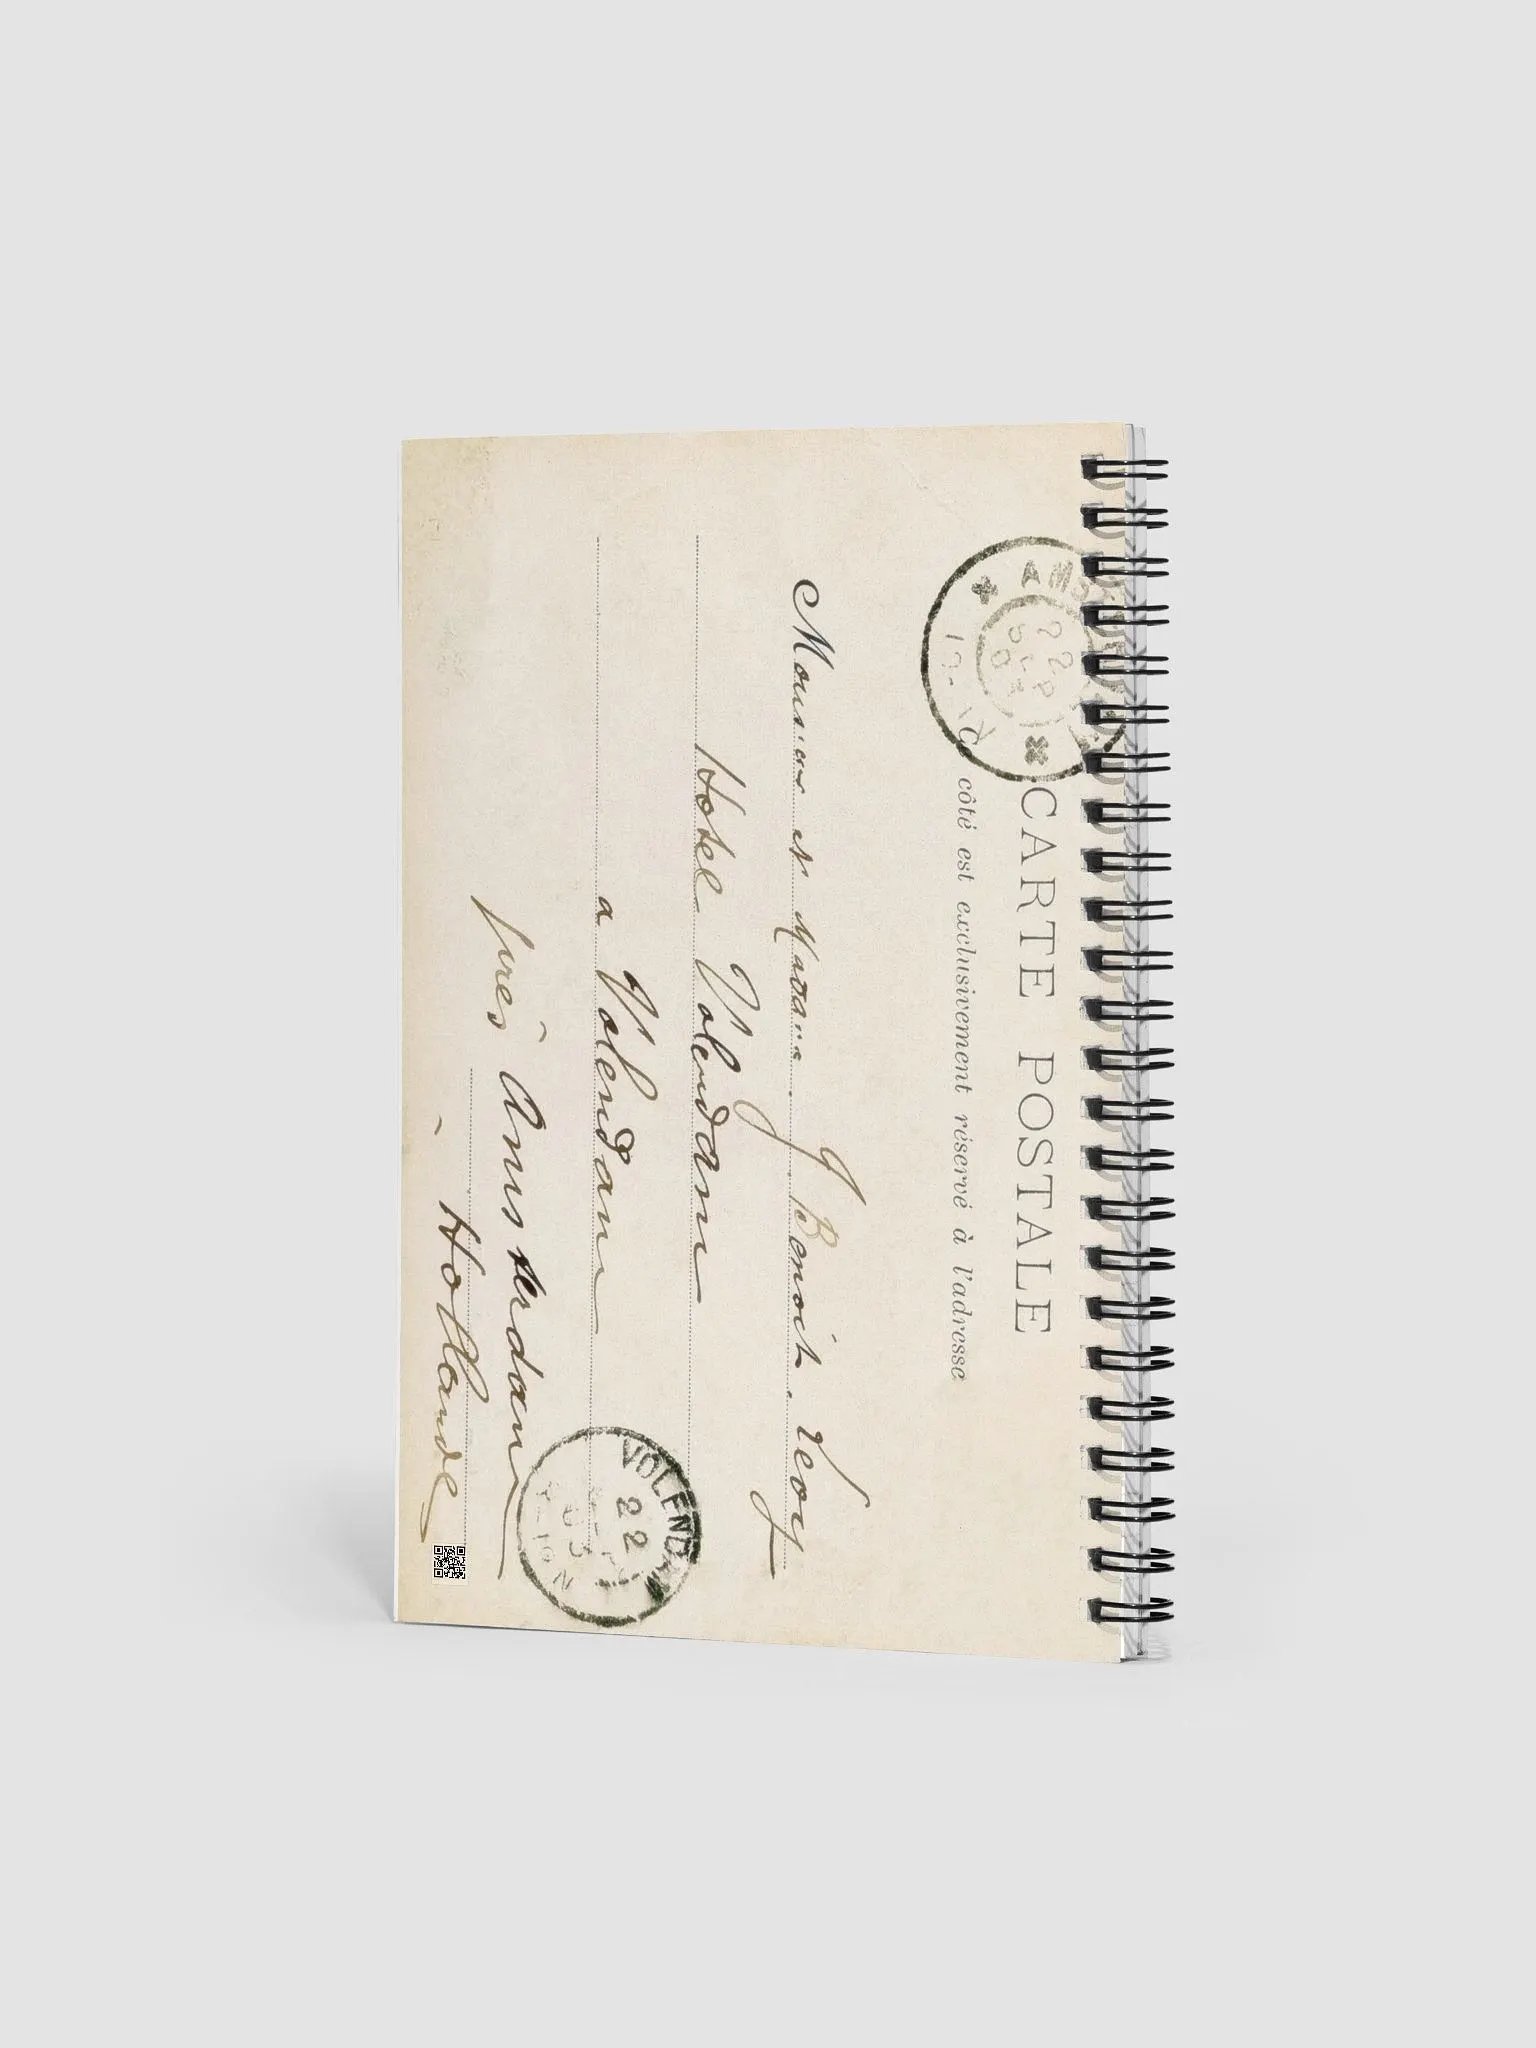 CARTE POSTALE
Ce côté est exclusivement réservé à l'adresse
Monsieur et Madame J Benoit Levy
Hotel Volendam
a Volendam
près Amsterdam
- Hollande
VOLENDAM
22